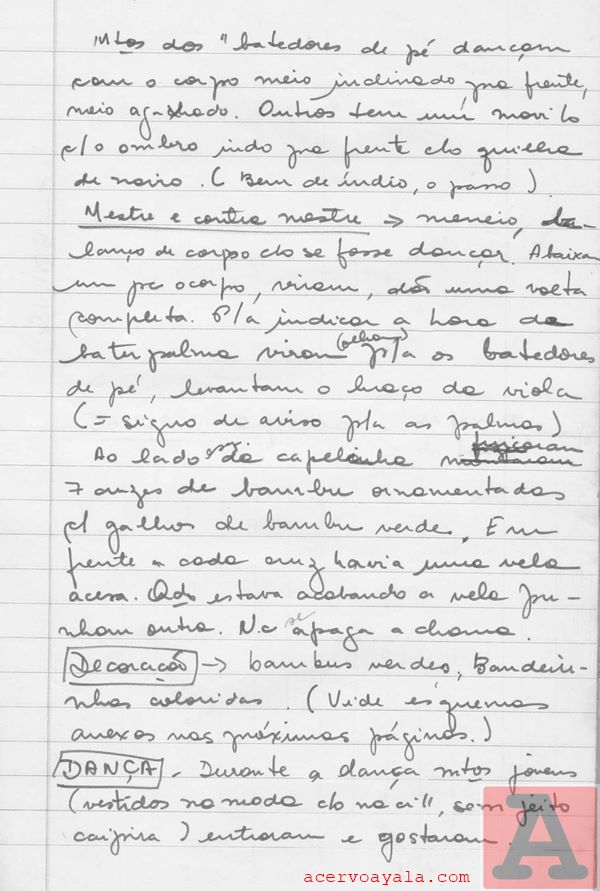 Mtos dos "batedores de pé dançam
com o corpo meio inclinado pra frente,
meio agachado. Outros tem um movito
c/o ombro indo pra frente
de navio. (Bem de índio, o passo)
Mestre e contra mestre → meneio, ba-
lanço de corpo c/o se fosse dançar. Abaixam
um pc o corpo, viram, dão uma volta
completa. P/a indicar a hora de
bater palma viram (olham) p/a os batedores
de pé, levantam o braço da viola
(= signo de aviso p/a as palmas)
Ao lado da capelinha fincaram
7 cruzes de bambu ornamentadas
c/ galhos de bambu verde. Em
frente a cada cruz havia uma vela
acesa. Qdo estava acabando a vela pu-
nham outra. Nc se apaga a chama.
Decoração → bambus verdes, Bandeiri-
nhas coloridas. (Vide esquemas
anexos nas próximas páginas.)
DANÇA - Durante a dança mtos jovens
(vestidos na moda sem jeito
caipira) entraram e gostaram.
A
acervoayala.com